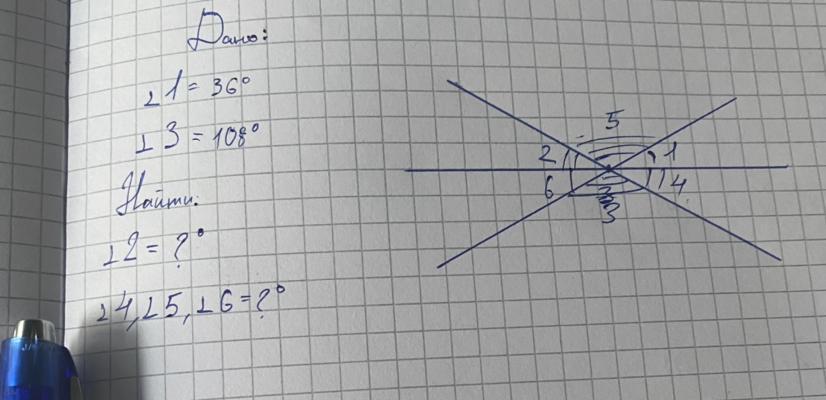 Дано:
∠1 = 36°
∠3 = 108°
Найти:
∠2 = ?°
∠4, ∠5, ∠6 = ?°
5
2
1
6
4
3